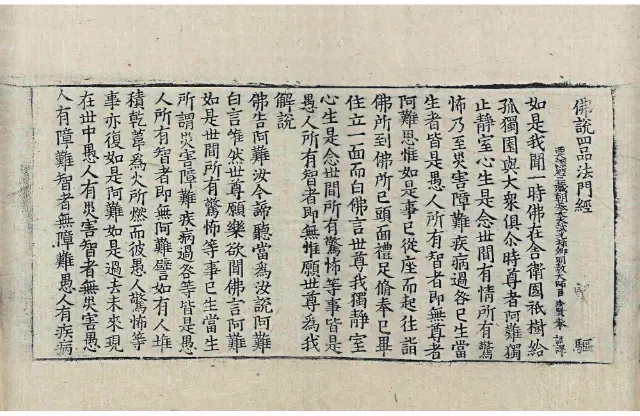 佛說四品法門經 驅
西天譯經三藏朝奉大夫試光祿卿明教大師臣法賢奉 詔譯
如是我聞一時佛在舍衛國祇樹給
孤獨園與大衆俱尒時尊者阿難獨
止靜室心生是念世間有情所有驚
怖乃至災害障難疾病過咎已生當
生者皆是愚人所有智者即無尊者
阿難思惟如是事已從座而起往詣
佛所到佛所已頭面禮足脩奉已畢
住立一面而白佛言世尊我獨靜室
心生是念世間所有驚怖等事皆是
愚人所有智者即無惟願世尊爲我
解說
佛告阿難汝今諦聽當爲汝說阿難
白言惟然世尊願樂欲聞佛言阿難
如是世間所有驚怖等事已生當生
所謂災害障難疾病過咎等皆是愚
人所有智者即無阿難譬如有人堆
積乾葦爲火所燃而彼愚人驚怖等
事亦復如是阿難如是過去未來現
在世中愚人有災害智者無災害愚
人有障難智者無障難愚人有疾病